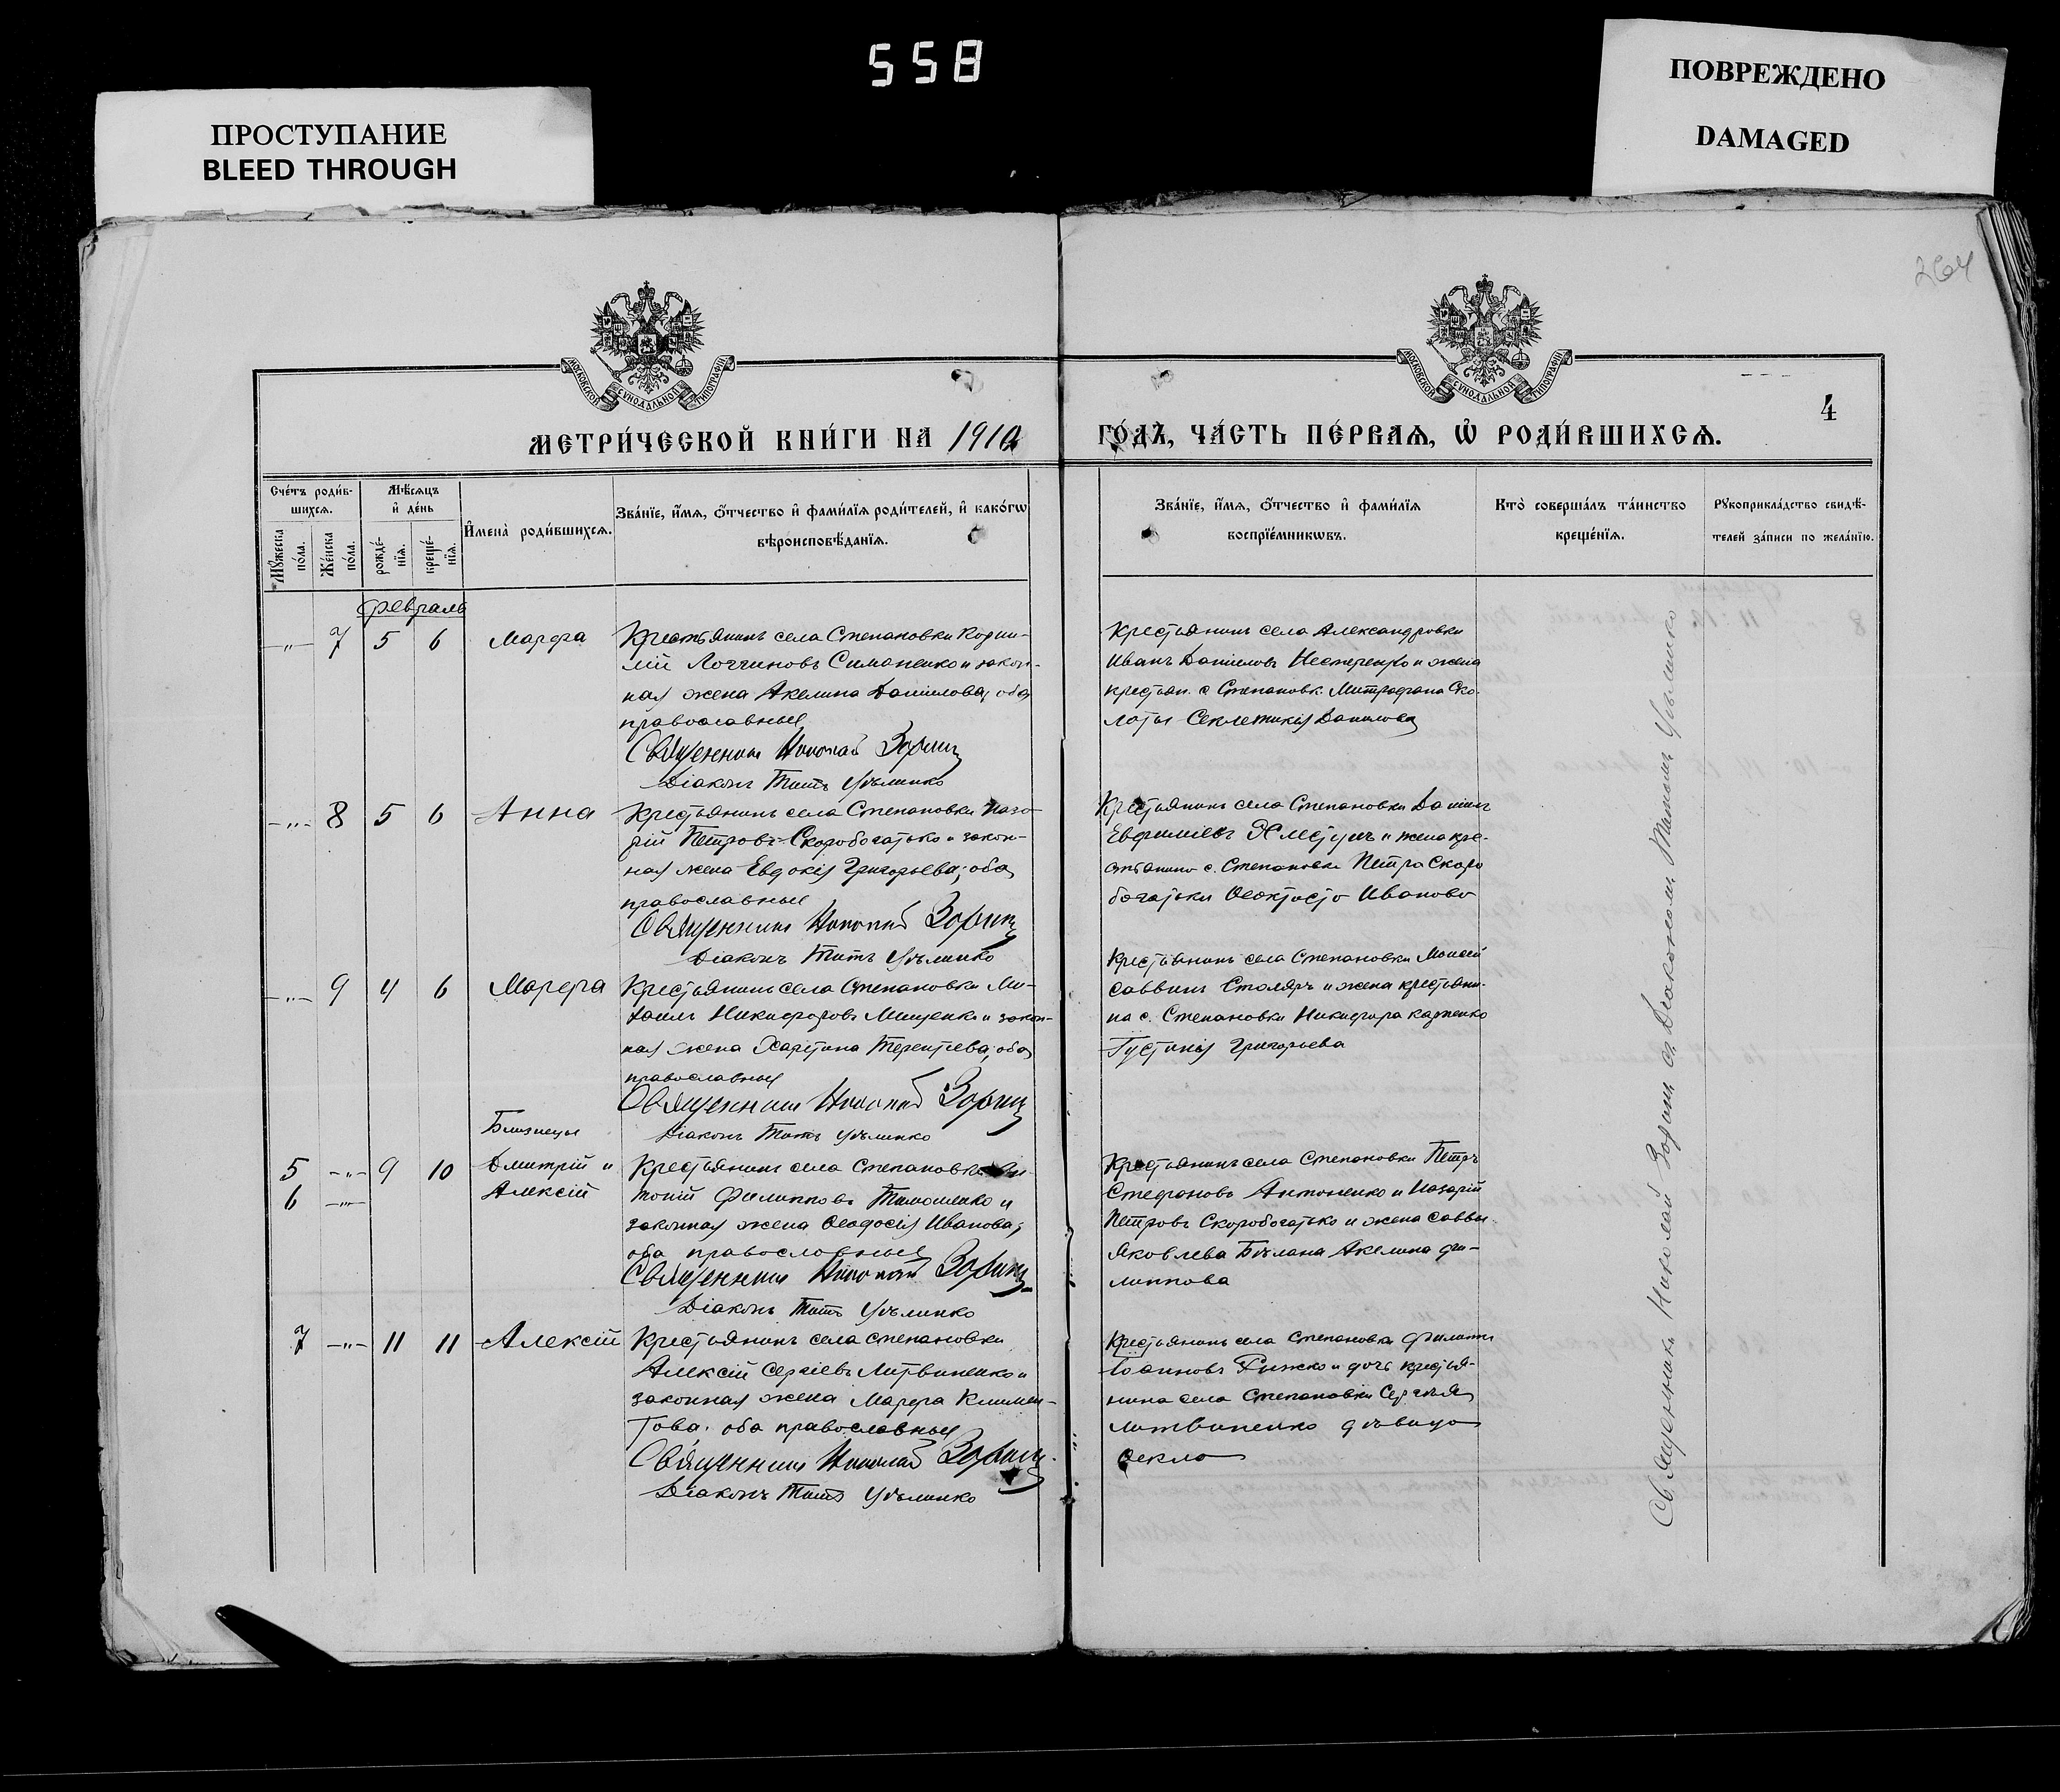 558
ПРОСТУПАНИЕ
BLEED THROUGH
ПОВРЕЖДЕНО
DAMAGED
264
МОСКОВСКОЙ СУНОДАЛЬНОЙ ТИПОГРАФІИ
МОСКОВСКОЙ СУНОДАЛЬНОЙ ТИПОГРАФІИ
4
МЕТРИ́ЧЕСКОЙ КНИ́ГИ НА 1910
ГО́ДЪ, ЧА́СТЬ ПЕ́РВАѦ, Ѽ РОДИ́ВШИХСѦ.
Сче́тъ роди́в-
шихсѧ.
Мꙋ́жеска по́ла.
Же́нска по́ла.
Мѣ́сѧцъ и҆ де́нь
рожде́-нїѧ.
креще́-нїѧ.
И҆мена̀ роди́вшихсѧ.
Зва́нїе, и҆́мѧ, ѻ҆́тчество и҆ фами́лїѧ роди́телей, и҆ како́гѡ
вѣроисповѣ́данїѧ.
Зва́нїе, и҆́мѧ, ѻ҆́тчество и҆ фами́лїѧ
воспрїе́мникѡвъ.
Кто̀ соверша́лъ та́инство
креще́нїѧ.
Рꙋкоприкла́дство свидѣ́-
телей за́писи по жела́нїю.
февраль
-"- 7 5 6 Марфа
Крестьянинъ села Степановки
Логгиновъ Симаненко и закон-
ная жена Акелина Даніилова, оба
православные
Священникъ Николай Зоринъ
Діаконъ Титъ
Крестьянинъ села Александровки
Иванъ Даніиловъ Нестеренко и жена
крестьян. с. Степановк. Митрофана Ско-
лоты Секлетикія Данилова
-"- 8 5 6 Анна
Крестьянинъ села Степановки Наза-
рій Петровъ Скоробогатько и закон-
ная жена Евдокія Григорьева; оба
православные
Священникъ Николай Зоринъ
Діаконъ Титъ
Крестьянинъ села Степановки Даніилъ
Евфиміевъ и жена кре-
стьянина с. Степановки Петра Скоро
богатьки Ѳеоктиста Иванова
-"- 9 4 6 Марфа
Крестьянинъ села Степановки Ми-
хаилъ Никифоровъ Мищенко и закон-
ная жена Харитина Терентіева; оба
православные
Священникъ Николай Зоринъ
Діаконъ Титъ
Крестьянинъ села Степановки Моисей
Саввинъ Столяръ и жена крестьяни-
на с. Степановки Никифора Карпенко
Густинія Григорьева
Близнецы
5 -"- 9 10 Дмитрій и
6 -"- Алексій
Крестьянинъ села Степановки
Филипповъ Тимошенко и
законная жена Ѳеодосія Иванова;
оба православные
Священникъ Николай Зоринъ
Діаконъ Титъ
Крестьянинъ села Степановки Петръ
Стефановъ Антоненко и Назарій
Петровъ Скоробогатько и жена Саввы
Яковлева Акелина Фи-
липпова
7 -"- 11 11 Алексій
Крестьянинъ села Степановки
Алексій Сергіевъ Литвиненко и
законная жена Марфа Климен-
това. оба православные
Священникъ Николай Зоринъ
Діаконъ Титъ
Крестьянинъ села Степановки Филиппъ
Іоанновъ Рижко и дочь крестья-
нина села Степановки Сергѣя
Литвиненко дѣвица
Ѳекла
Священникъ Николай Зоринъ съ Діакономъ Титомъ